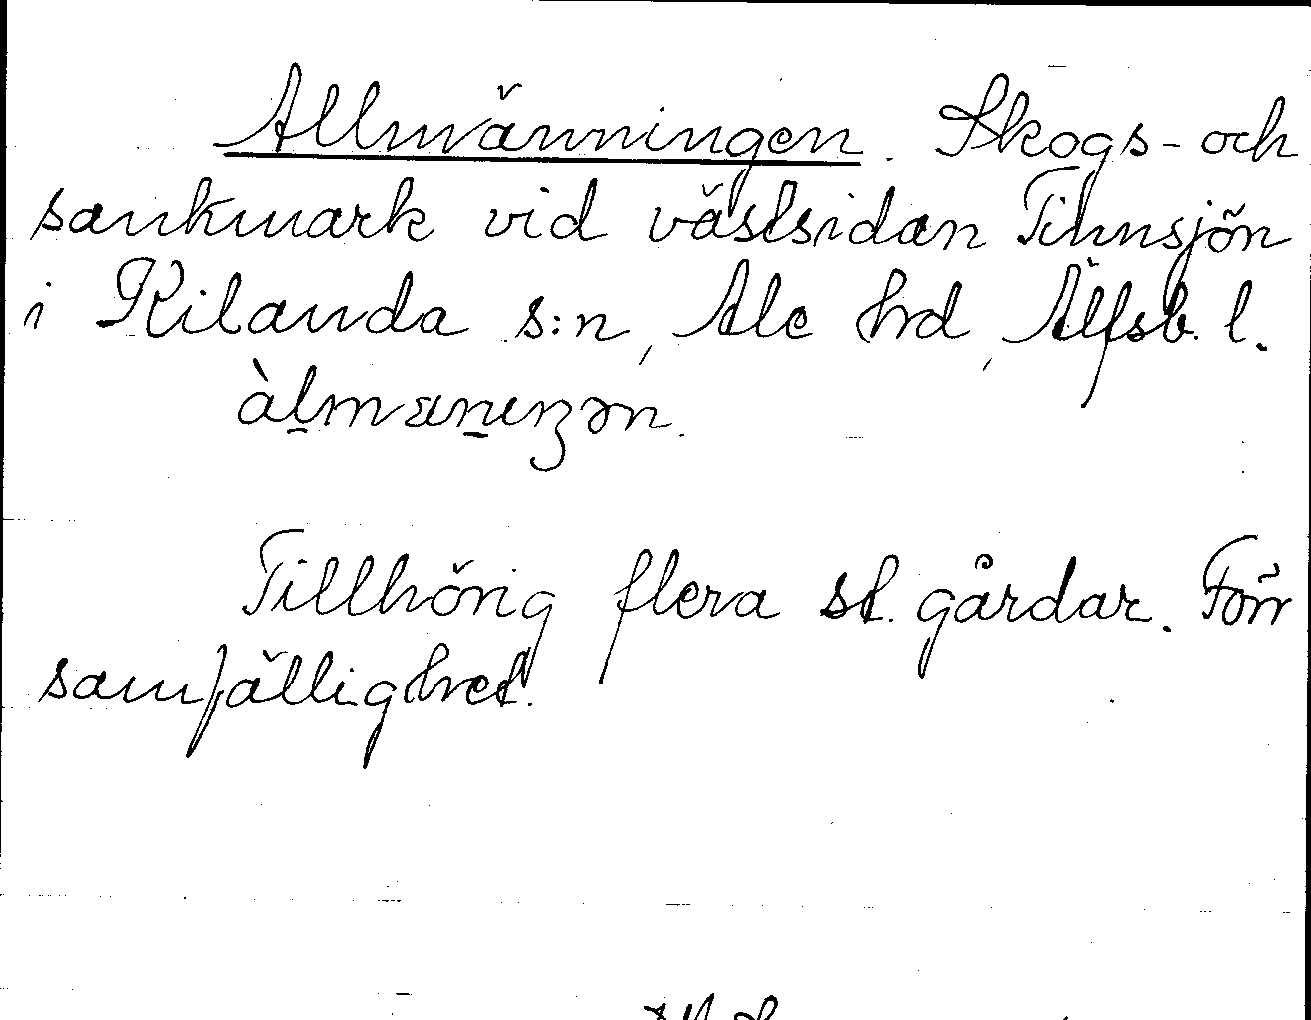 Allmänningen. Skogs- och
sankmark vid västsidan Tinnsjön
i Kilanda s:n, Ale hrd, Älfsb. l.
àlmænıŋən.
Tillhörig flera st. gårdar. Förr
samfällighet.